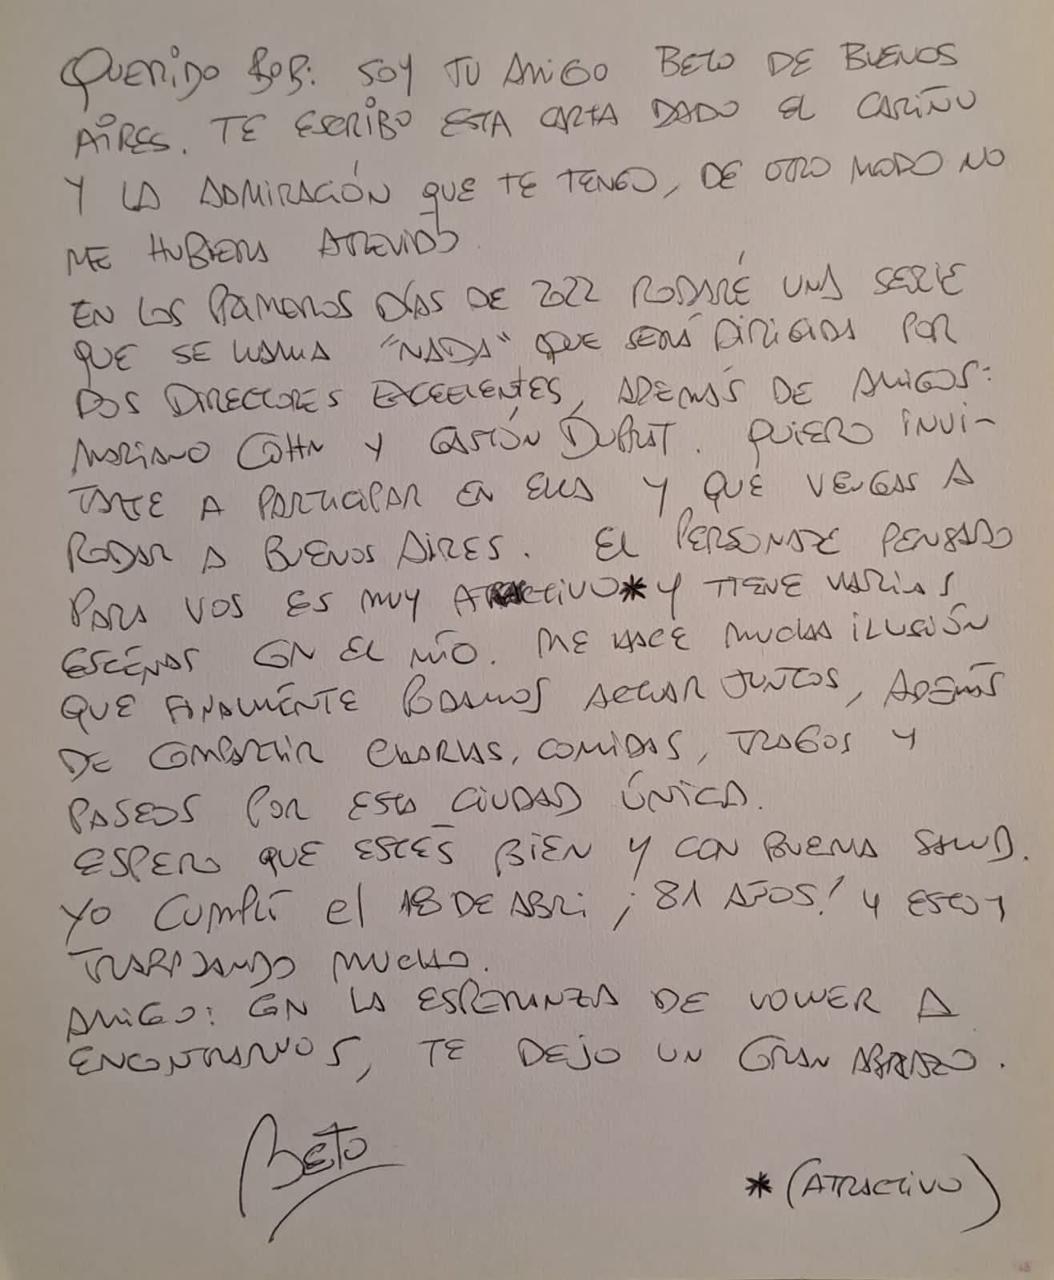 QUERIDO BOB: SOY TU AMIGO BETO DE BUENOS
AIRES. TE ESCRIBO ESTA CARTA DADO EL CARIÑO
Y LA ADMIRACIÓN QUE TE TENGO, DE OTRO MODO NO
ME HUBIERA ATREVIDO.
EN LOS PRIMEROS DÍAS DE 2022 RODARÉ UNA SERIE
QUE SE LLAMA "NADA" QUE SERÁ DIRIGIDA POR
DOS DIRECTORES EXCELENTES, ADEMÁS DE AMIGOS:
MARIANO COHN Y GASTÓN DUPRAT. QUIERO INVI-
TARTE A PARTICIPAR EN ELLA Y QUE VENGAS A
RODAR A BUENOS AIRES. EL PERSONAJE PENSADO
PARA VOS ES MUY ATRACTIVO* Y TIENE VARIAS
ESCENAS CON EL MÍO. ME HACE MUCHA ILUSIÓN
QUE FINALMENTE PODAMOS ACTUAR JUNTOS, ADEMÁS
DE COMPARTIR CHARLAS, COMIDAS, TRAGOS Y
PASEOS POR ESTA CIUDAD ÚNICA.
ESPERO QUE ESTÉS BIEN Y CON BUENA SALUD.
YO CUMPLÍ el 18 DE ABRIL ¡81 AÑOS! Y ESTOY
TRABAJANDO MUCHO.
AMIGO: EN LA ESPERANZA DE VOLVER A
ENCONTRARNOS, TE DEJO UN GRAN ABRAZO.
BETO
* (ATRACTIVO)